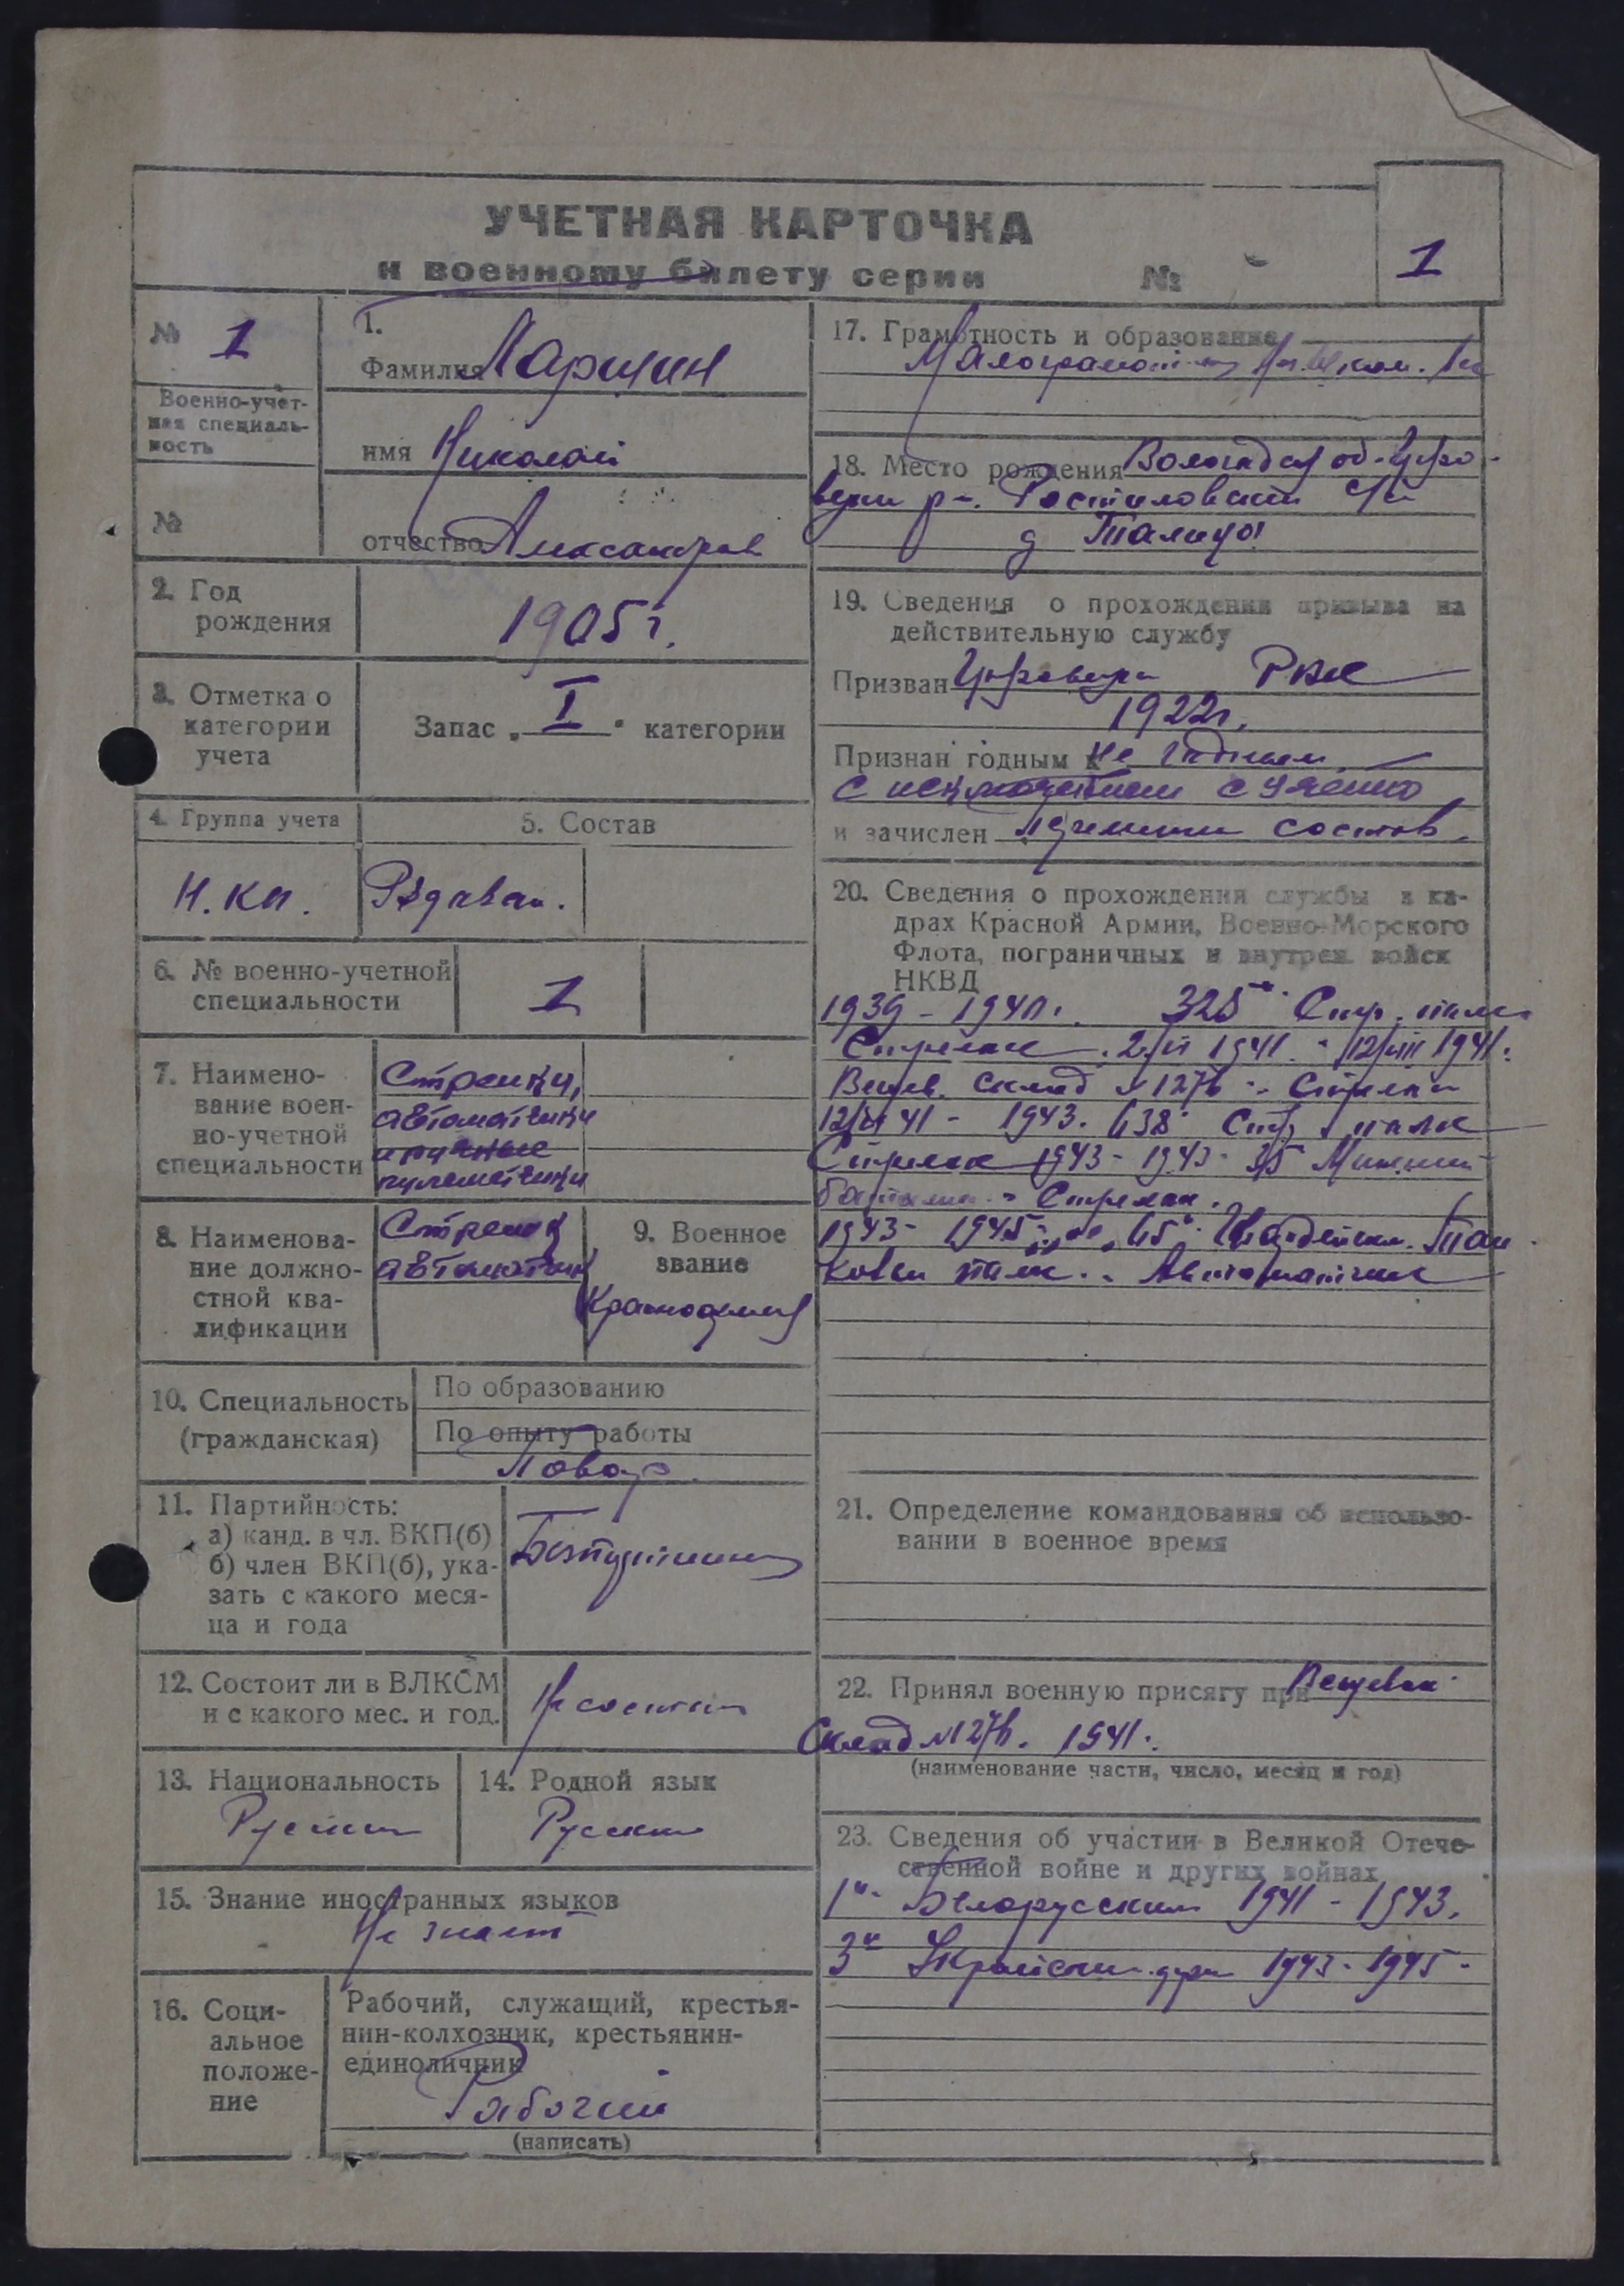 УЧЕТНАЯ КАРТОЧКА
к военному билету серии №
1
№ 1
Военно-учет-
ная специаль-
ность
№
1.
Фамилия Ларицин
имя Николай
отчество Александров
2. Год
рождения
1905 г.
3. Отметка о
категории
учета
Запас „ I " категории
4. Группа учета
5. Состав
Н. КА.
Рядавам.
6. № военно-учетной
специальности
1
7. Наимено-
вание воен-
но-учетной
специальности
Стрелки,
автоматчики
ручные
пулеметчики
8. Наименова-
ние должно-
стной ква-
лификации
Стрелок
автоматчик
9. Военное
звание
Красноармеец
10. Специальность
(гражданская)
По образованию
По опыту работы
Повар.
11. Партийность:
а) канд. в чл. ВКП(б)
б) член ВКП(б), ука-
зать с какого меся-
ца и года
Безпартийный
12. Состоит ли в ВЛКСМ
и с какого мес. и год.
Не состоит
13. Национальность
Русский
14. Родной язык
Русский
15. Знание иностранных языков
Не знает
16. Соци-
альное
положе-
ние
Рабочий, служащий, крестья-
нин-колхозник, крестьянин-
единоличник
Рабочий
(написать)
17. Грамотность и образование
Малограмотный
18. Место рождения Вологодская об.
р-н. Ростиловский с/с
д Талица
19. Сведения о прохождении призыва на
действительную службу
Призван РВК
1922г.
Признан годным к не годным
с исключением с учета
и зачислен состав.
20. Сведения о прохождении службы в ка-
драх Красной Армии, Военно-Морского
Флота, пограничных и внутрен. войск
НКВД
1939 - 1940г. 325 Стр. полк
Стрелок. 2/VI 1941. - 12/VIII 1941.
Вещев. склад № 1276 - Стрелок
12/ 41 - 1943. 638 Стр. полк
Стрелок 1943 - 1943 - 35
Стрелок.
1943 - 1945 г. 45 Гвардейски. Тан
ковы полк. - Автоматчик
21. Определение командования об использо-
вании в военное время
22. Принял военную присягу при Вещевом
Склад №1276. 1941.
(наименование части, число, месяц и год)
23. Сведения об участии в Великой Отече-
ственной войне и других войнах
1й Белорусский 1941 - 1943.
3й Украинский фр. 1943 - 1945 -